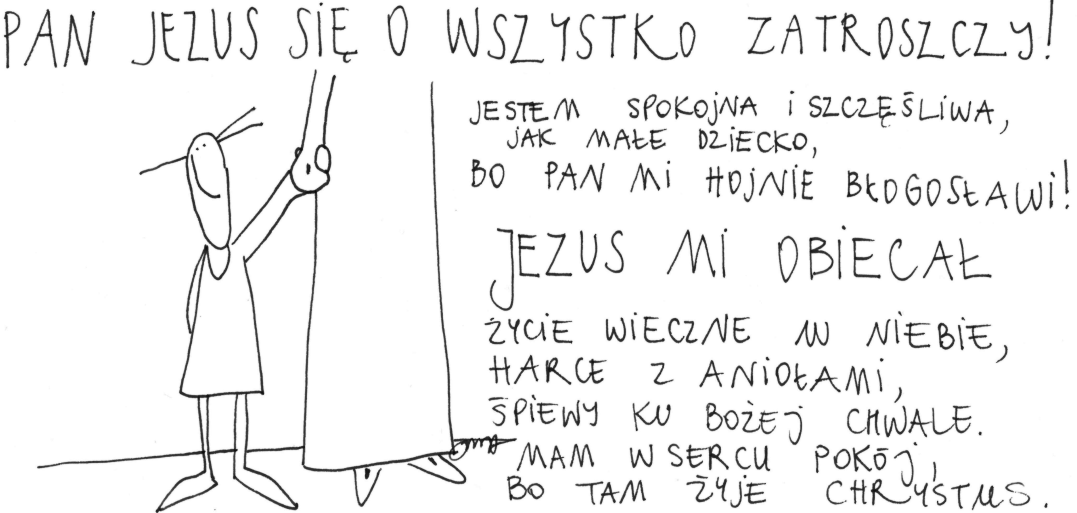 PAN JEZUS SIĘ O WSZYSTKO ZATROSZCZY!
JESTEM SPOKOJNA i SZCZĘŚLIWA,
JAK MAŁE DZIECKO,
BO PAN Mi HOJNIE BŁOGOSŁAWi!
JEZUS Mi OBIECAŁ
ŻYCIE WIECZNE W NIEBIE,
HARCE Z ANIOŁAMi,
ŚPIEWY KU BOŻEJ CHWALE.
MAM W SERCU POKÓJ,
BO TAM ŻYJE CHRYSTUS.